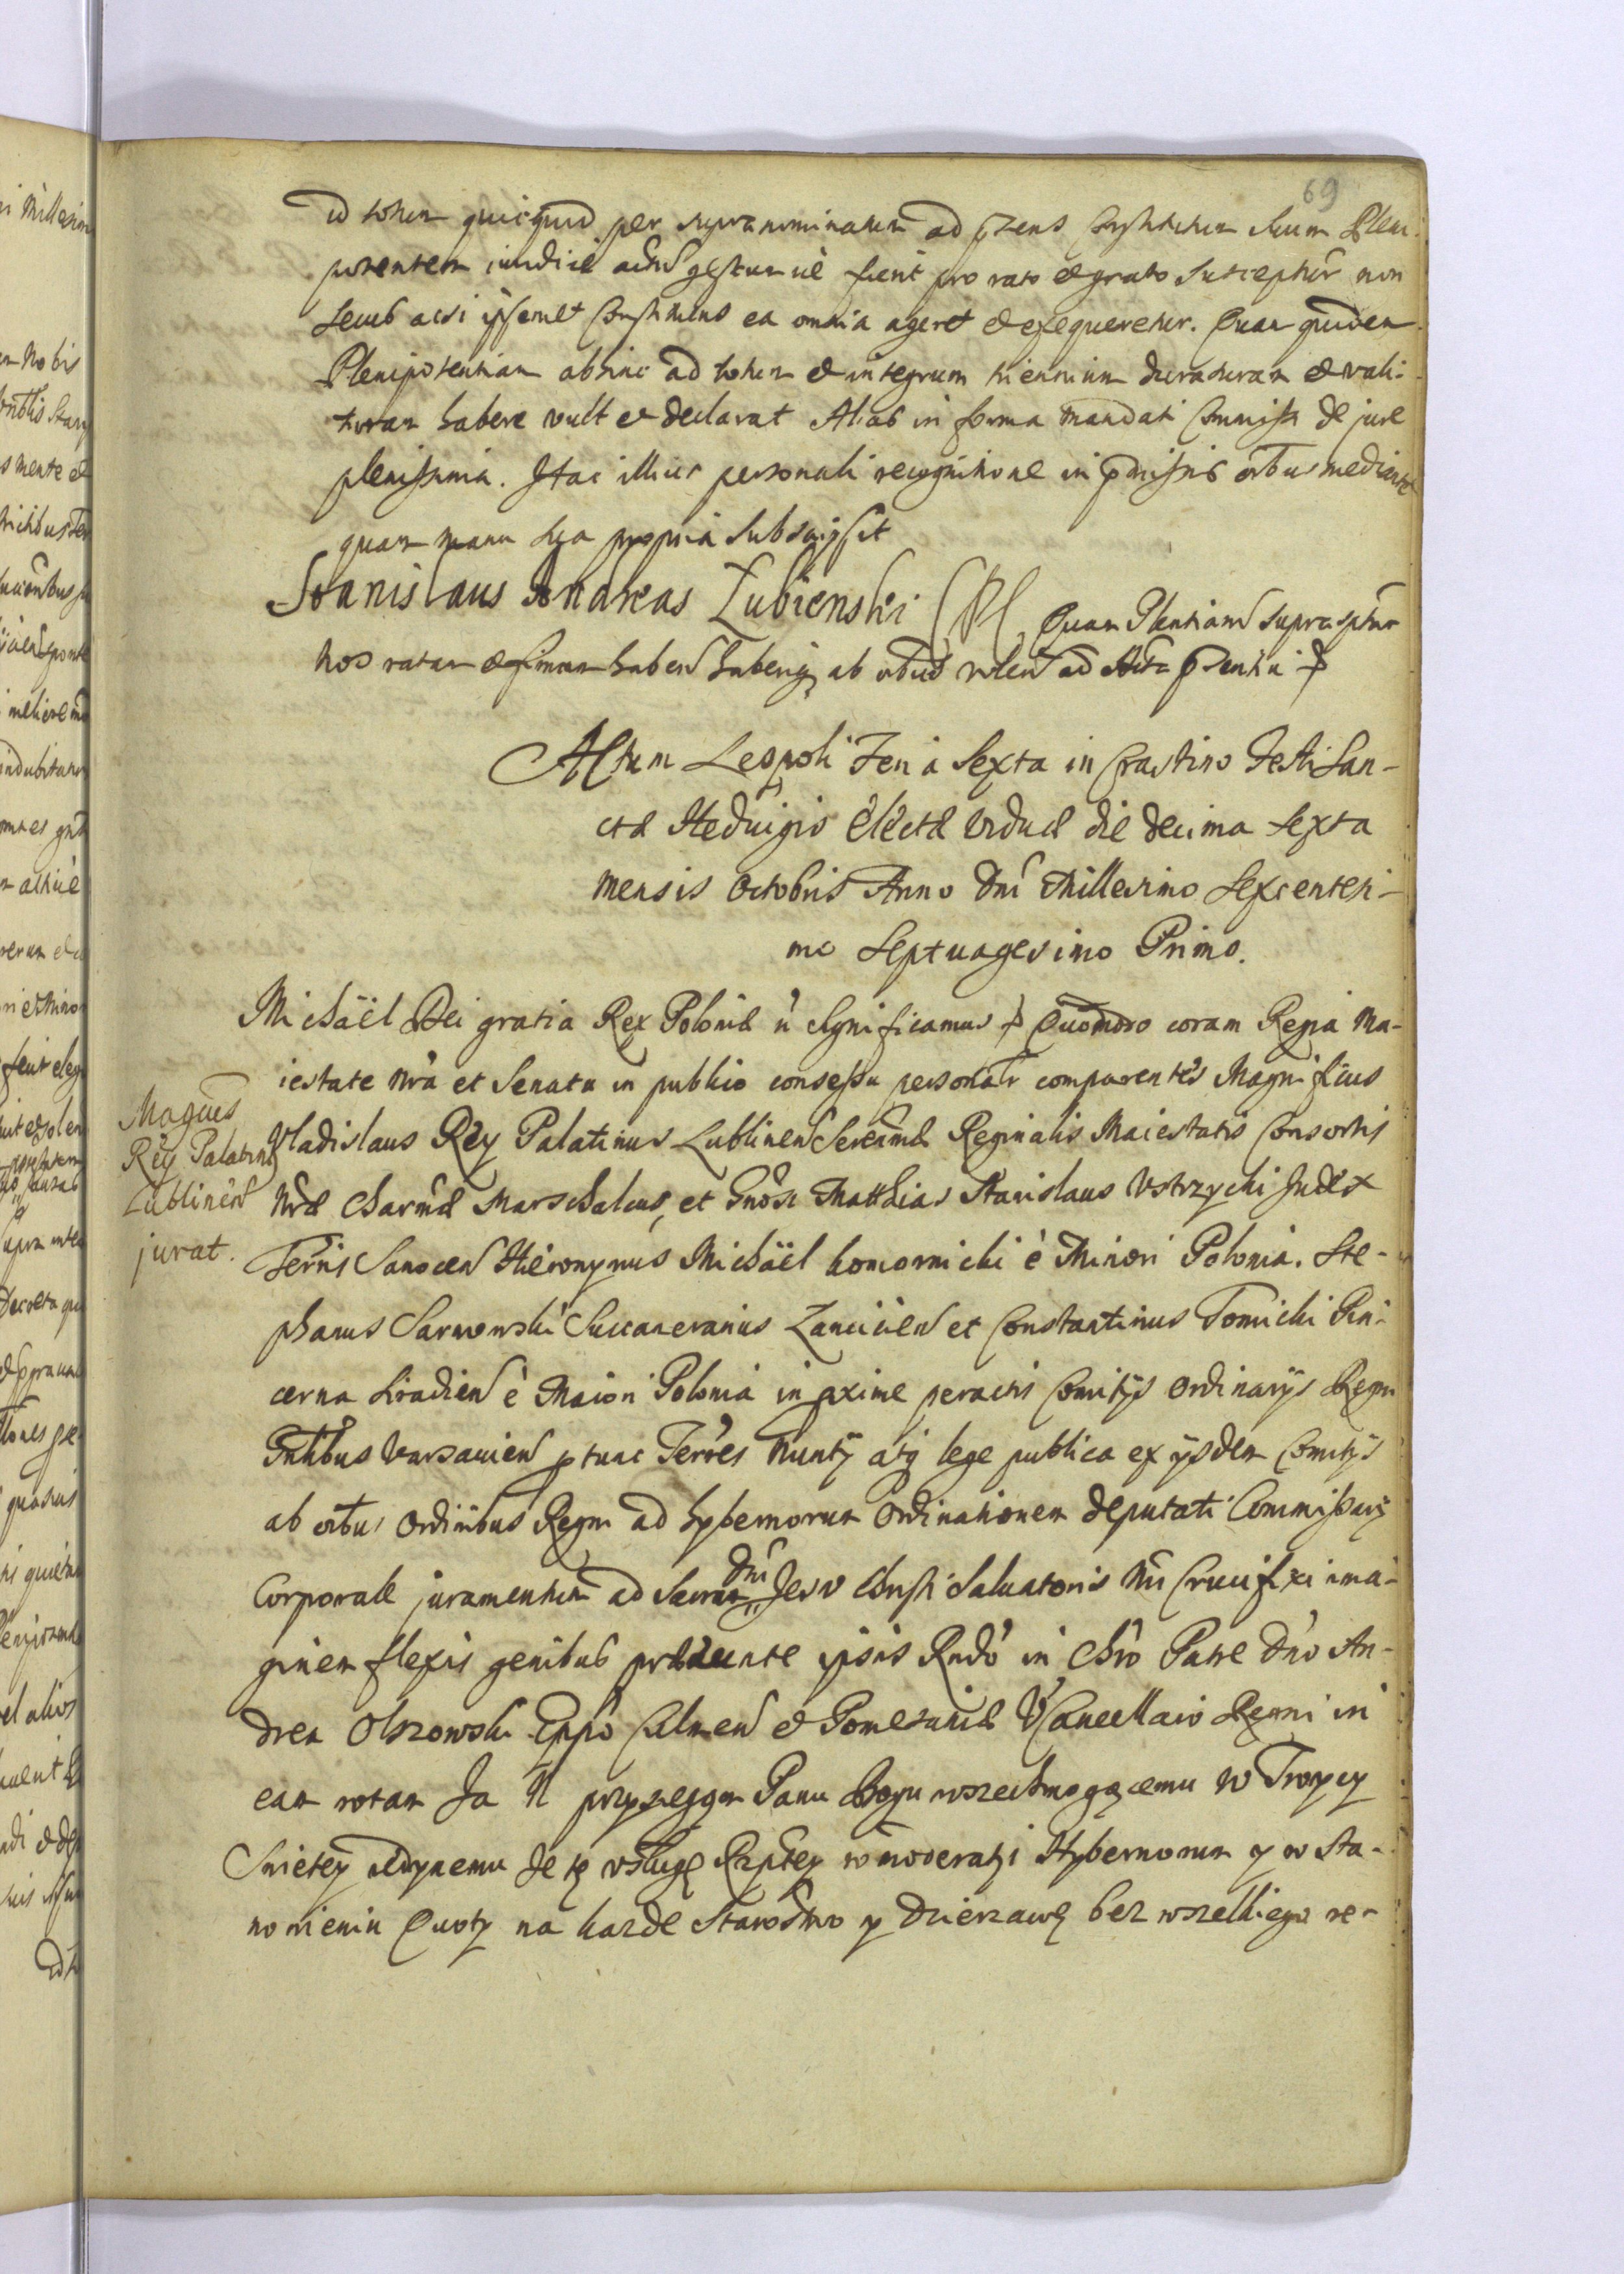 69
id totum quicquid per supranominatum ad pzens Constitutum suum Pleni-
potentem iuridice actũ gestumue fuerit pro rato et grato suscepturũ non
secus acsi ipsemet Constituens ea omnia ageret et exequeretur. Quam quidem
Plenipotentiam abhinc ad totum et integrum triennium duraturam et vali-
turam habere vult et declarat Alias in forma mandati Commissi de jure
plenissima. Hac illius personali recognitione in pmissis oibus mediante
quam manu sua propria subscripsit
Stanislaus Andreas Łubienski Quam Plentiam supraspta
nos ratam et firmam haben haberiq ab oibus volen ad Acta psentia
Actum Leopoli Feria Sexta in Crastino Festi San-
ctæ Heduigis Electæ Viduæ die decima sexta
mensis Octobris Anno Dni Millesimo Sexcentesi-
mo Septuagesimo Primo.
Michäel Dei gratia Rex Poloniæ ũ significamus Quomodo coram Regia Ma-
iestate Nrã et Senatu in publico consessu personalr comparentes Magnificus
Vladislaus Rey Palatinus Lublinen Serenmæ Reginalis Maiestatis Consortis
Nræ Charmæ Marschalcus, et Gnosi Matthias Stanislaus Vstrzycki Judex
Terris Sanocen Hieronymus Michäel komornicki è Minori Polonia. Ste-
phanus Sarnowski Succamerarius Lancicien et Constantinus Tomicki Pin-
cerna Siradien è Maiori Polonia in pxime peractis Comitijs Ordinarijs Regni
Gnlibus Varsauien p tunc Terres Nuntij atq lege publica ex ijsdem Comitijs
ab oibus Ordinibus Regni ad hybernorum Ordinationem deputati Commissarij
Corporale juramentum ad Sacram Dni Jesu Christi Saluatoris Nri Crucifixi ima-
ginem flexis genibus præeunte ipsis Rndo in Chro Patre Dno An-
drea Olszowski Eppo Culmen et Pomesaniæ VCancellario Regni in
eam rotam Ja N przysiegam Panu Bogu wszechmogącemu w Troycy
Swietey iedynemu Ze tę vsługę Rzptey w moderatij Hybernorum y w sta-
nowieniu Quoty na każde Starostwo y dzierzawę bez wszelkiego re-
Magcus
Rey Palatinus
Lublinen
jurat.